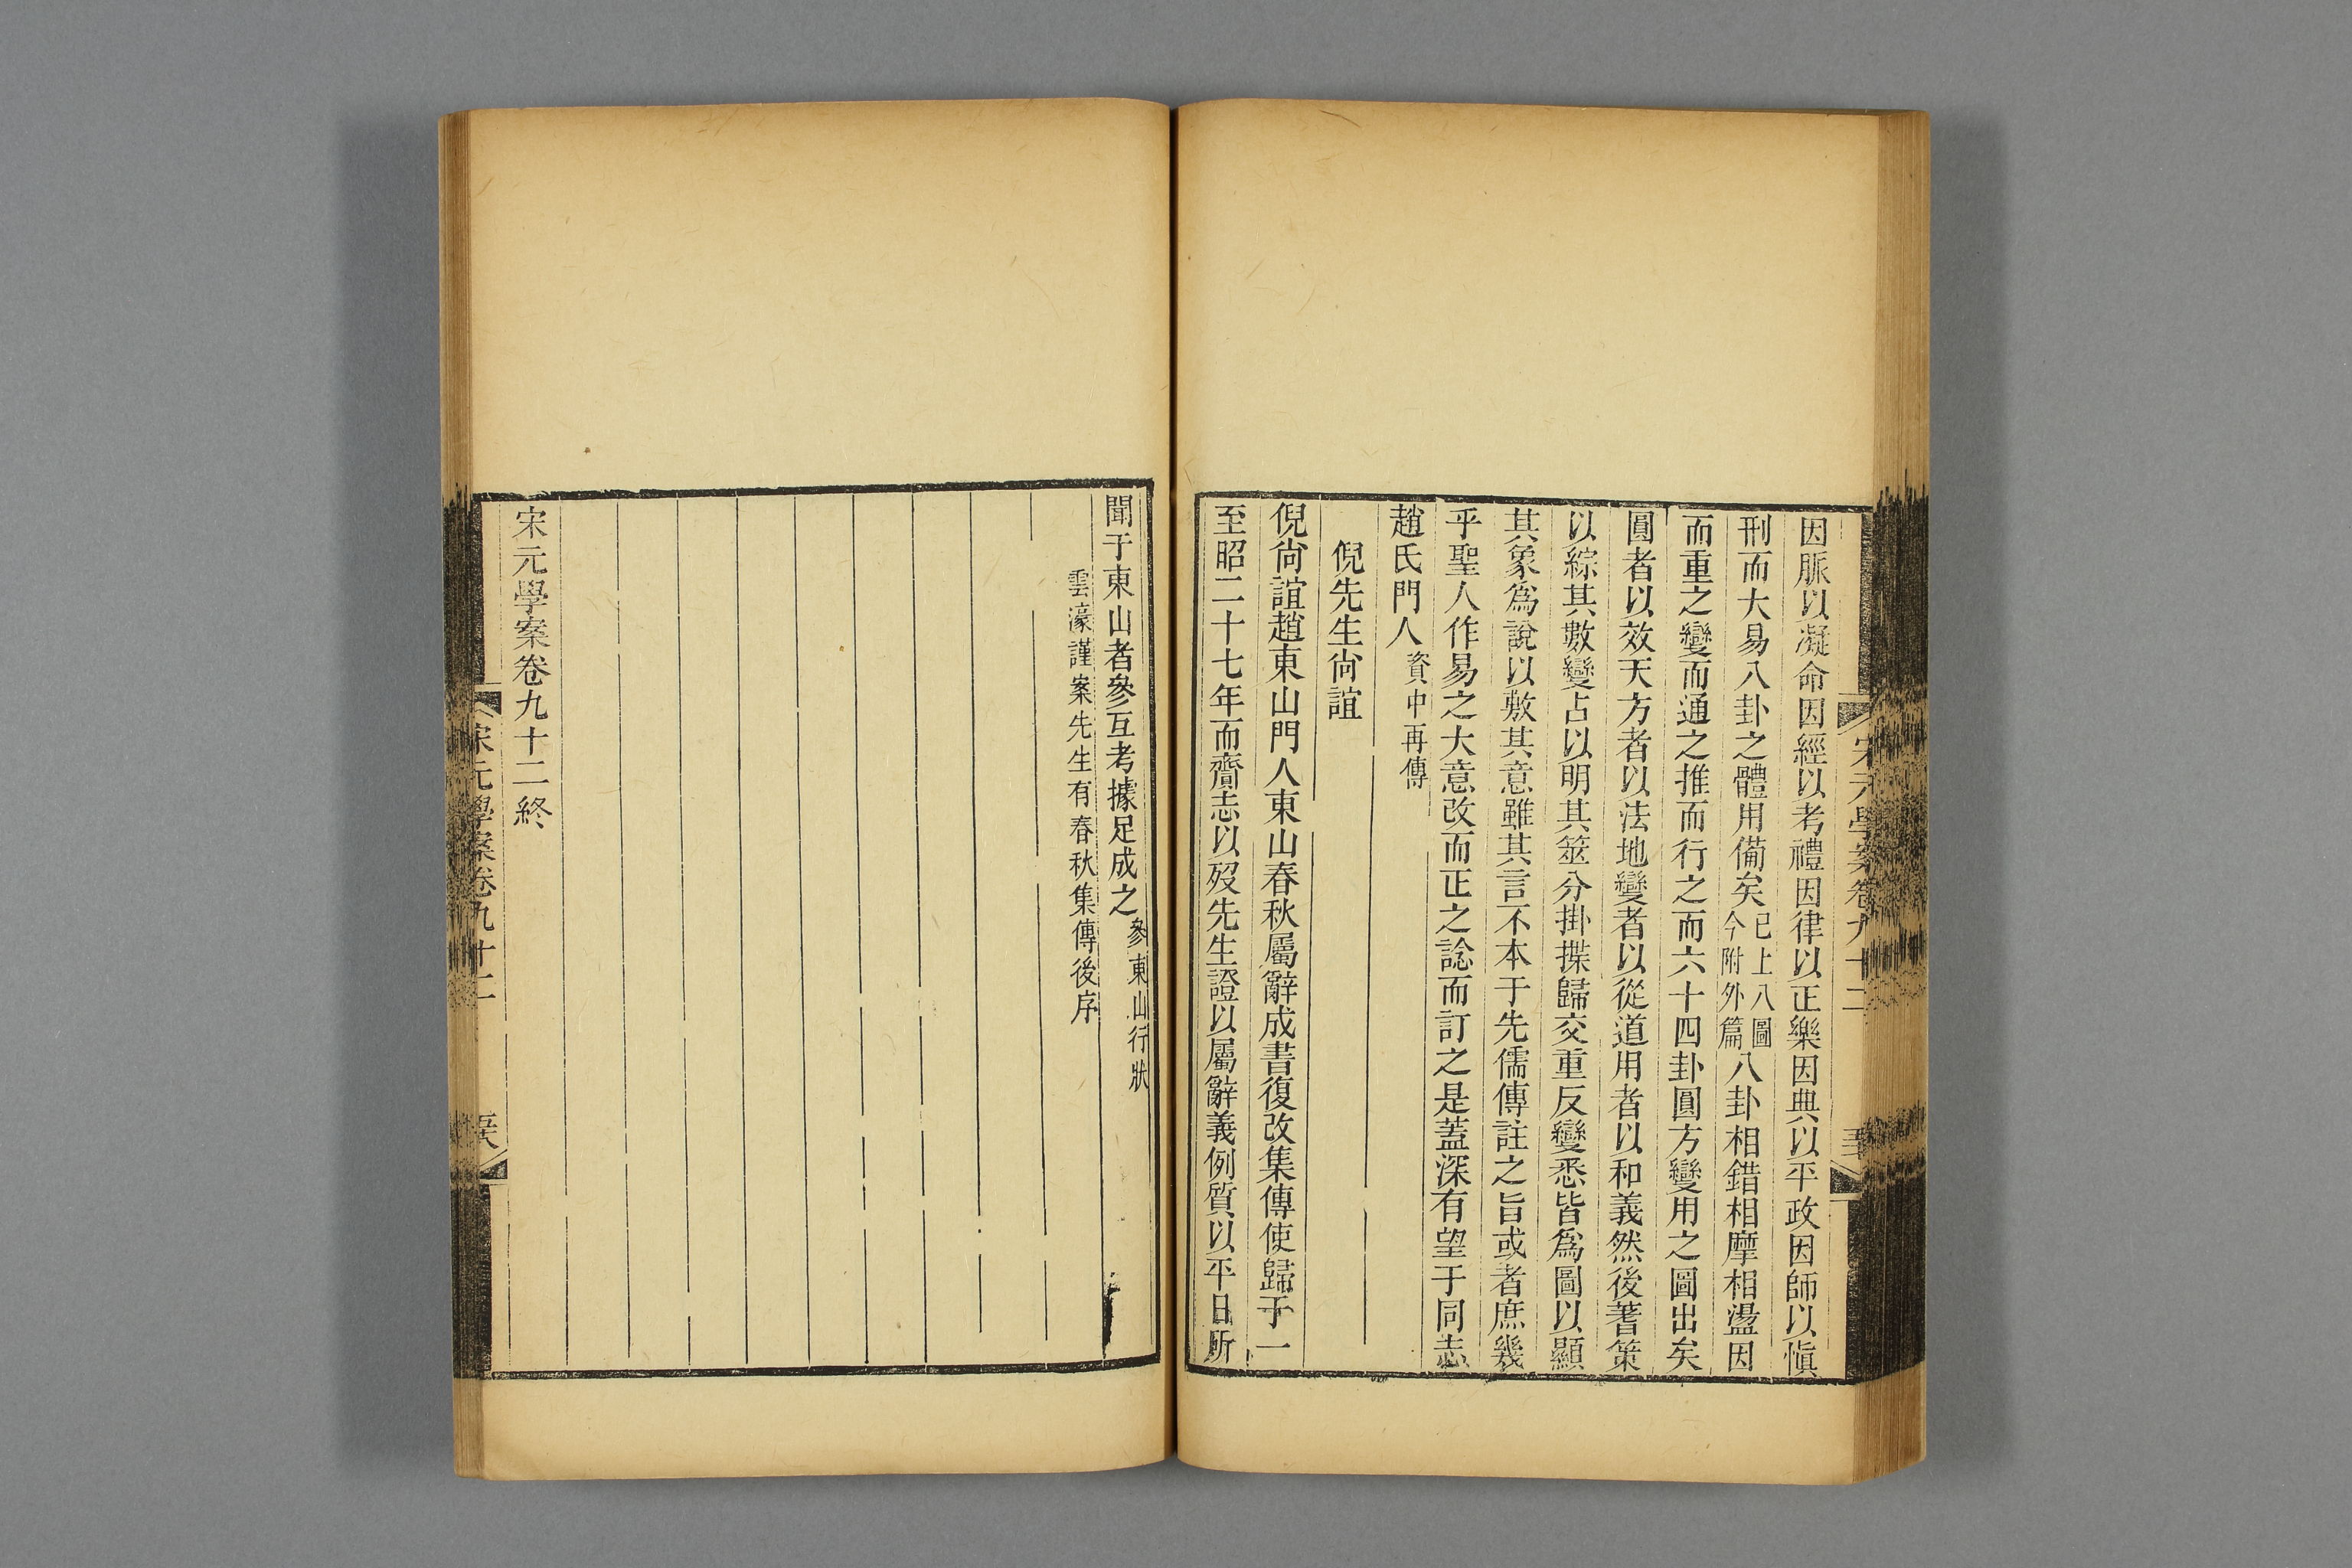 宋元學案卷九十二
因脈以凝命因經以考禮因律以正樂因典以平政因師以愼
刑而大易八卦之體用備矣已上八圖今附外篇八卦相錯相摩相盪因
而重之變而通之推而行之而六十四卦圓方變用之圖出矣
圓者以效天方者以法地變者以從道用者以和義然後蓍策
以綜其數變占以明其筮分掛揲歸交重反變悉皆爲圖以顯
其象爲說以敷其意雖其言不本于先儒傳註之旨或者庶幾
乎聖人作易之大意改而正之諗而訂之是蓋深有望于同志
趙氏門人資中再傳
倪先生尙誼
倪尙誼趙東山門人東山春秋屬辭成書復改集傳使歸于一
至昭二十七年而齎志以歿先生證以屬辭義例質以平日所
聞于東山者參互考據足成之參東山行狀
雲濠謹案先生有春秋集傳後序
宋元學案卷九十二終
宋元學案卷九十二